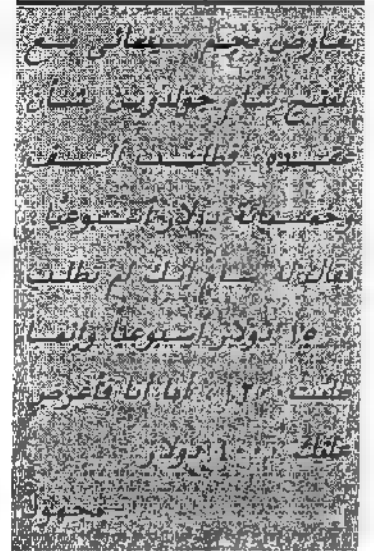 تفاوض نجم سينمائي مع
المنتج سام جولدوين بشأن
عقده، فطلب ألف
وخمسمائة دولار أسبوعيا،
فقال له سام إنك لم تطلب
١٥٠٠ دولار أسبوعيا وإنما
طلبت ١٢٠٠، أما أنا فأعرض
عليك ١٠٠٠ دولار